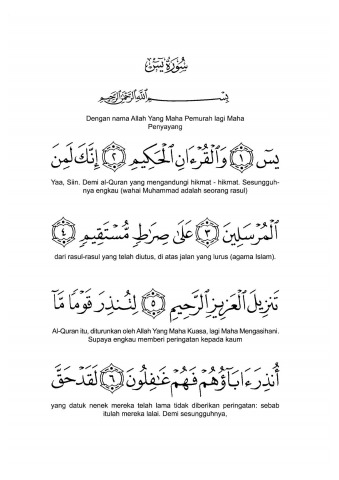 سُورَةُ يسٓ
بِسْمِ اللَّهِ الرَّحْمَٰنِ الرَّحِيمِ
Dengan nama Allah Yang Maha Pemurah lagi Maha
Penyayang
يسٓ ١ وَالْقُرْءَانِ الْحَكِيمِ ٢ إِنَّكَ لَمِنَ
Yaa, Siin. Demi al-Quran yang mengandungi hikmat - hikmat. Sesungguh-
nya engkau (wahai Muhammad adalah seorang rasul)
الْمُرْسَلِينَ ٣ عَلَىٰ صِرَاطٍ مُّسْتَقِيمٍ ٤
dari rasul-rasul yang telah diutus, di atas jalan yang lurus (agama Islam).
تَنزِيلَ الْعَزِيزِ الرَّحِيمِ ٥ لِتُنذِرَ قَوْمًا مَّآ
Al-Quran itu, diturunkan oleh Allah Yang Maha Kuasa, lagi Maha Mengasihani.
Supaya engkau memberi peringatan kepada kaum
أُنذِرَ ءَابَآؤُهُمْ فَهُمْ غَٰفِلُونَ ٦ لَقَدْ حَقَّ
yang datuk nenek mereka telah lama tidak diberikan peringatan: sebab
itulah mereka lalai. Demi sesungguhnya,